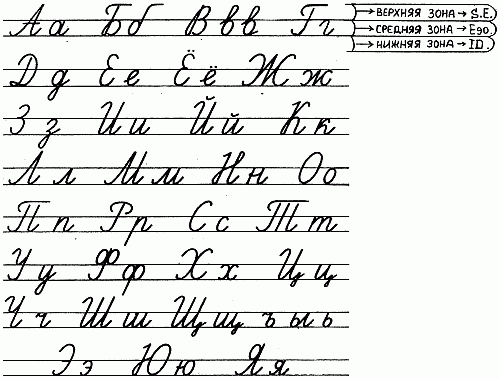 Аа Бб Ввв Гг
Дд Ее Ёё Жж
Зз Ии Йй Кк
Лл Мм Нн Оо
Пп Рр Сс Тт
Уу Фф Хх Цц
Чч Шш Щщ ъ ы ь
Ээ Юю Яя
ВЕРХНЯЯ ЗОНА → S.E.
СРЕДНЯЯ ЗОНА → Ego.
НИЖНЯЯ ЗОНА → ID.